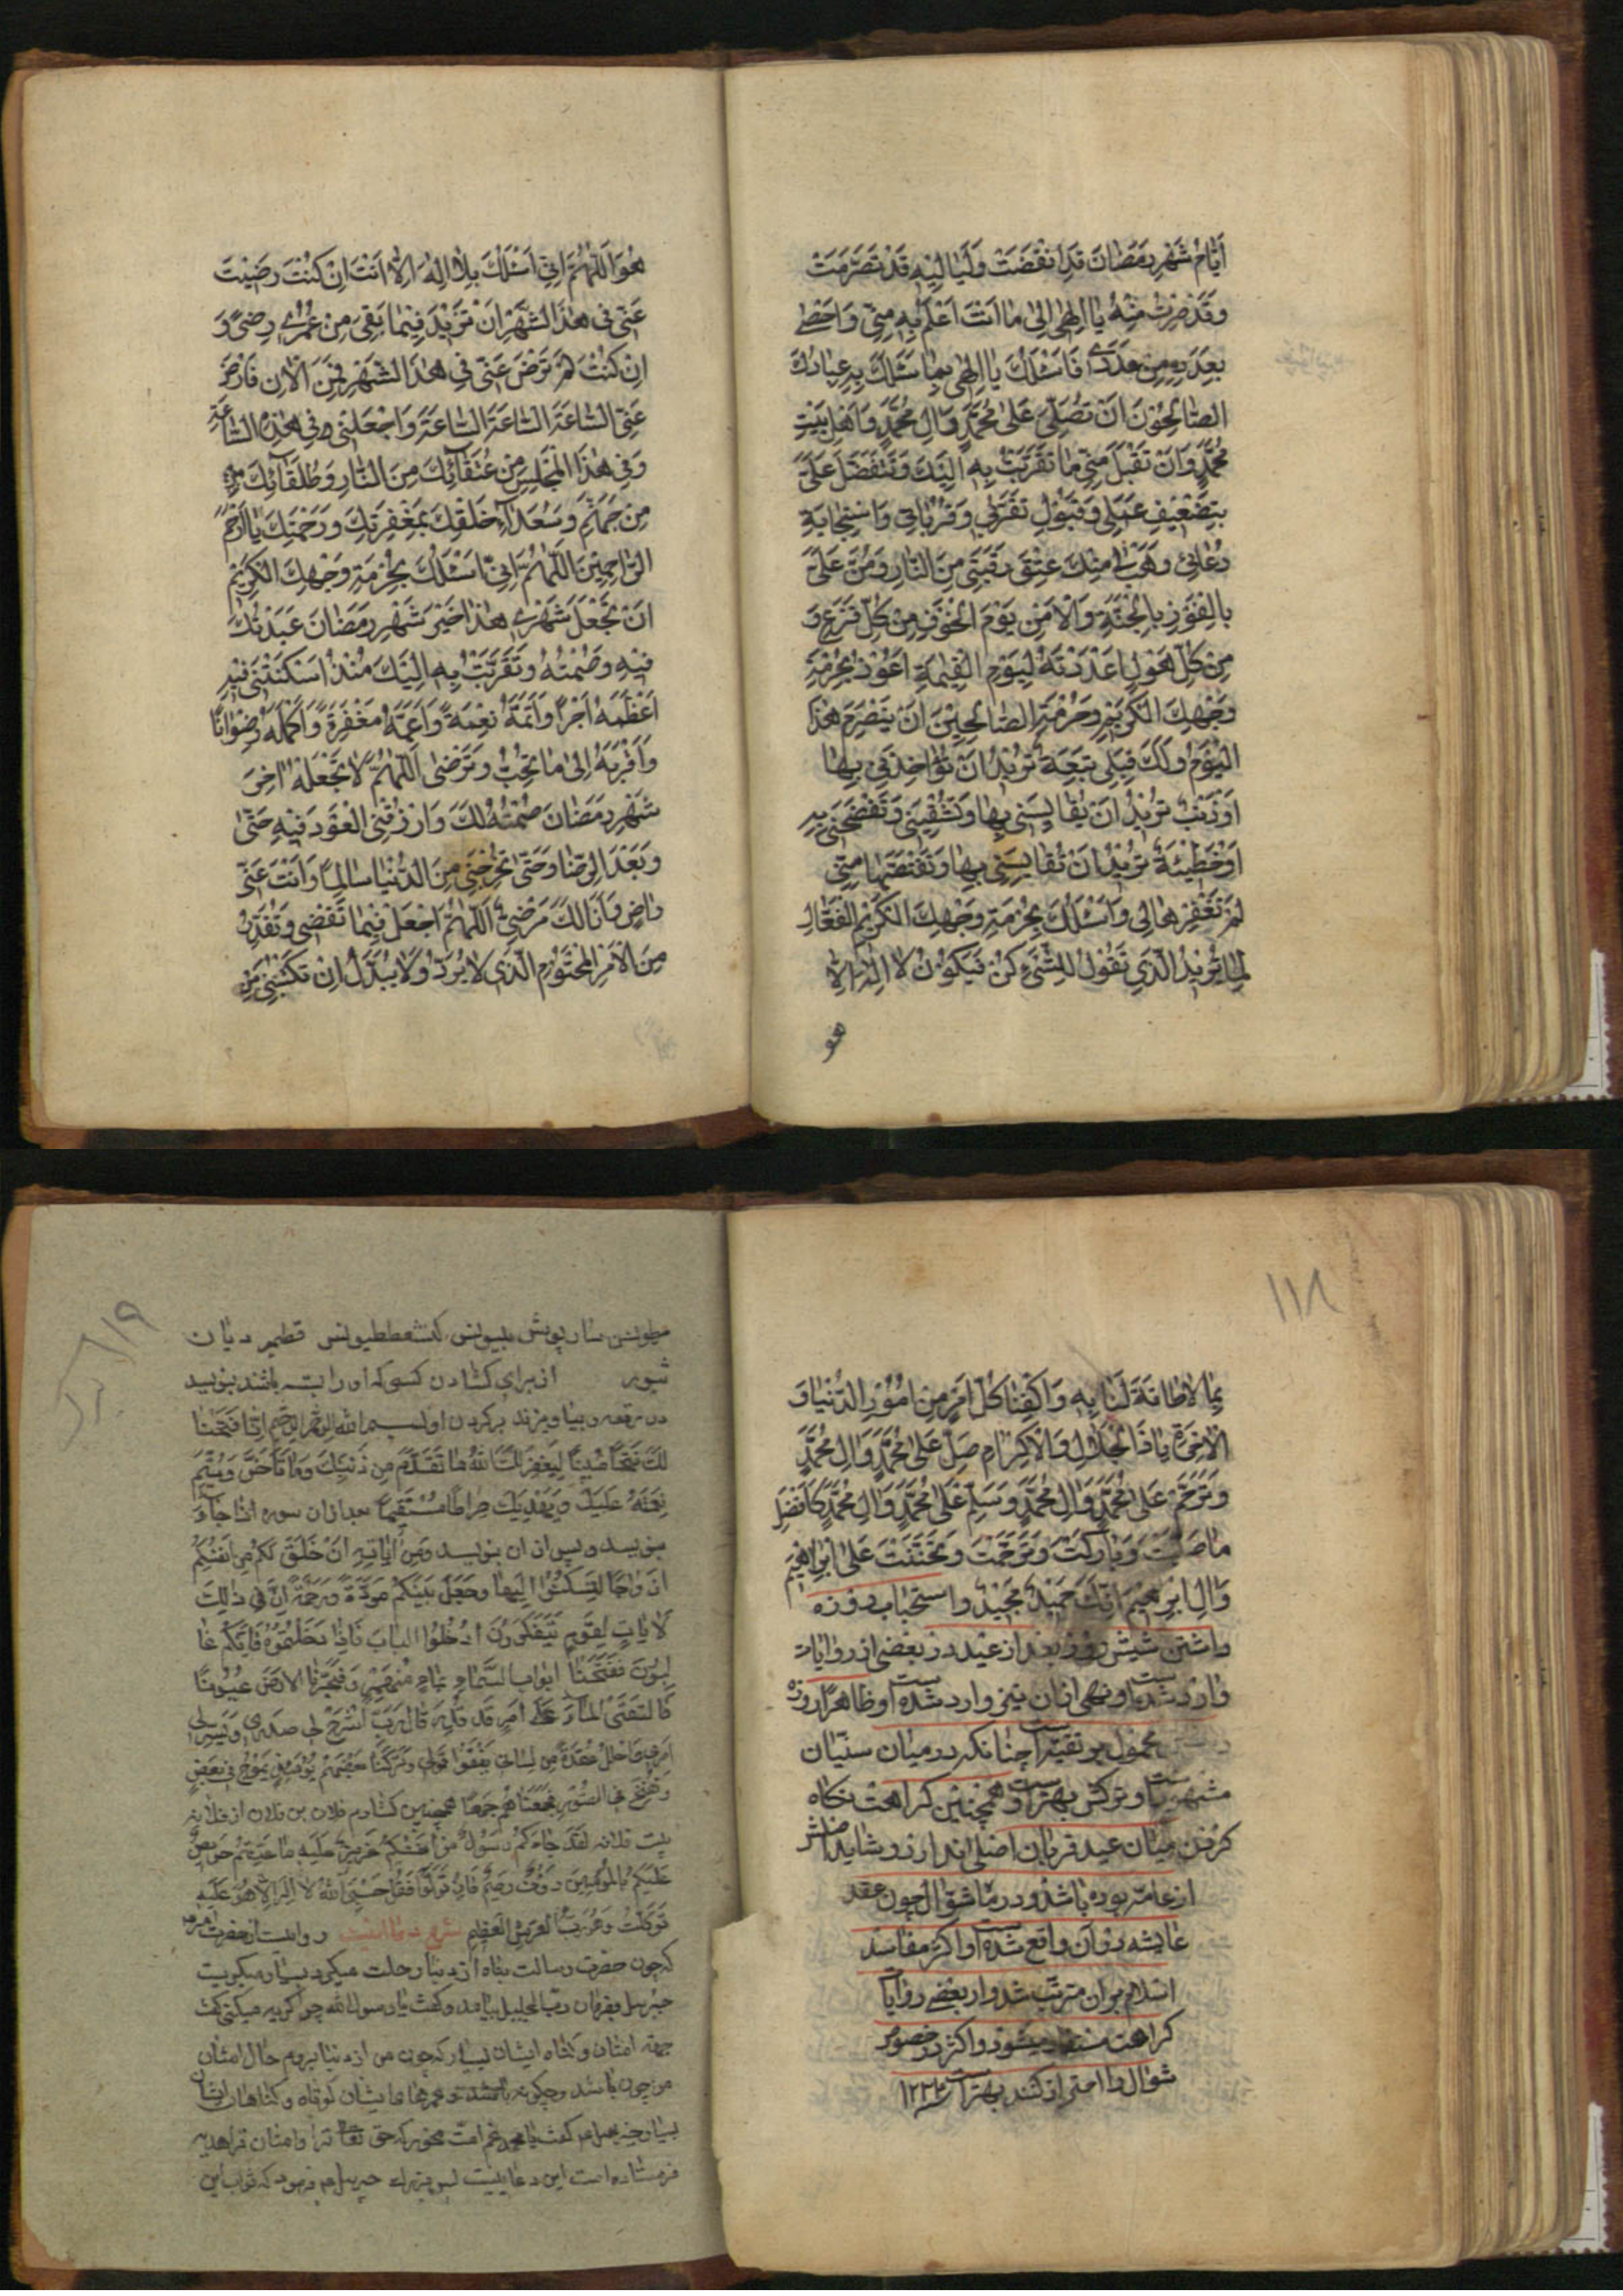 اَيّامُ شَهْرِ رَمَضانَ قَدِ انْقَضَتْ وَلَياليهِ قَدْ تَصَرَّمَتْ
وَقَدْ صِرْتُ مِنْهُ يا اِلهي اِلى ما اَنْتَ اَعْلَمُ بِهِ مِنّي وَاَحْصى
بِعَدَدِهِ مِنْ عَدَدي فَاَسْئَلُكَ يا اِلهي بِما سَئَلَكَ بِهِ عِبادُكَ
الصّالِحُونَ اَنْ تُصَلِّيَ عَلى مُحَمَّدٍ وَالِ مُحَمَّدٍ وَاَهْلِ بَيْتِ
مُحَمَّدٍ وَاَنْ تَقْبَلَ مِنّي ما تَقَرَّبْتُ بِهِ اِلَيْكَ وَتَتَفَضَّلَ عَلَيَّ
بِتَضْعيفِ عَمَلي وَقَبُولِ تَقَرُّبي وَقُرُباتي وَاسْتِجابَةِ
دُعائي وَهَبْ لي مِنْكَ عِتْقَ رَقَبَتي مِنَ النّارِ وَمُنَّ عَلَيَّ
بِالْفَوْزِ بِالْجَنَّةِ وَالْاَمْنِ يَوْمَ الْخَوْفِ مِنْ كُلِّ فَزَعٍ وَ
مِنْ كُلِّ هَوْلٍ اَعْدَدْتَهُ لِيَوْمِ الْقِيمَةِ اَعُوذُ بِحُرْمَةِ
وَجْهِكَ الْكَريمِ وَحُرْمَةِ الصّالِحينَ اَنْ يَنْصَرِمَ هذَا
الْيَوْمُ وَلَكَ قِبَلي تَبِعَةٌ تُريدُ اَنْ تُؤاخِذَني بِها
اَوْ ذَنْبٌ تُريدُ اَنْ تُقايِسَني بِها وَتُشْقِيَني وَتَفْضَحَني بِهِ
اَوْ خَطيئَةٌ تُريدُ اَنْ تُقايِسَني بِها وَتَقْتَصَّها مِنّي
لَمْ تَغْفِرْها لي وَاَسْئَلُكَ بِحُرْمَةِ وَجْهِكَ الْكَريمِ الْفَعّالِ
لِما يُريدُ الَّذي تَقُولُ لِلشَّيْءِ كُنْ فَيَكُونُ لا اِلهَ اِلّا
هو
هُوَ اَللّهُمَّ اِنّي اَسْئَلُكَ بِلا اِلهَ اِلّا اَنْتَ اِنْ كُنْتَ رَضيتَ
عَنّي في هذَا الشَّهْرِ اَنْ تَزيدَ فيما بَقِيَ مِنْ عُمْري رِضىً وَ
اِنْ كُنْتَ لَمْ تَرْضَ عَنّي في هذَا الشَّهْرِ فَمِنَ الْانِ فَارْضَ
عَنّي السّاعَةَ السّاعَةَ السّاعَةَ وَاجْعَلْني في هذِهِ السّاعَةِ
وَفي هذَا الْمَجْلِسِ مِنْ عُتَقائِكَ مِنَ النّارِ وَطُلَقائِكَ
مِنْ جَهَنَّمَ وَسُعَداءِ خَلْقِكَ بِمَغْفِرَتِكَ وَرَحْمَتِكَ يا اَرْحَمَ
الرّاحِمينَ اَللّهُمَّ اِنّي اَسْئَلُكَ بِحُرْمَةِ وَجْهِكَ الْكَريمِ
اَنْ تَجْعَلَ شَهْري هذا خَيْرَ شَهْرِ رَمَضانَ عَبَدْتُكَ
فيهِ وَصُمْتُهُ وَتَقَرَّبْتُ بِهِ اِلَيْكَ مُنْذُ اَسْكَنْتَني فيهِ
اَعْظَمَهُ اَجْرًا وَاَتَمَّهُ نِعْمَةً وَاَعَمَّهُ مَغْفِرَةً وَاَكْمَلَهُ رِضْوانًا
وَاَقْرَبَهُ اِلى ما تُحِبُّ وَتَرْضى اَللّهُمَّ لا تَجْعَلْهُ اخِرَ
شَهْرِ رَمَضانَ صُمْتُهُ لَكَ وَارْزُقْنِي الْعَوْدَ فيهِ حَتّى
وَبَعْدَ الرِّضا وَحَتّى تُخْرِجَني مِنَ الدُّنْيا سالِمًا وَاَنْتَ عَنّي
راضٍ وَاَنَا لَكَ مَرْضِيٌّ اَللّهُمَّ اجْعَلْ فيما تَقْضي وَتُقَدِّرُ
مِنَ الْاَمْرِ الْمَحْتُومِ الَّذي لا يُرَدُّ وَلا يُبَدَّلُ اَنْ تَكْتُبَني مِنْ
١١٨
بِما لا طاقَةَ لَنا بِهِ وَاكْفِنا كُلَّ اَمْرٍ مِنْ اُمُورِ الدُّنْيا وَ
الْاخِرَةِ يا ذَا الْجَلالِ وَالْاِكْرامِ صَلِّ عَلى مُحَمَّدٍ وَالِ مُحَمَّدٍ
وَتَرَحَّمْ عَلى مُحَمَّدٍ وَالِ مُحَمَّدٍ وَسَلِّمْ عَلى مُحَمَّدٍ وَالِ مُحَمَّدٍ كَاَفْضَلِ
ما صَلَّيْتَ وَبارَكْتَ وَتَرَحَّمْتَ وَتَحَنَّنْتَ عَلى اِبْراهيمَ
وَالِ اِبْراهيمَ اِنَّكَ حَميدٌ مَجيدٌ واستحباب روزه
داشتن شش روز بعد از عید در بعضی از روایات
وارد شده است و نهی از آن نیز وارد شده است و ظاهرًا روزه
محمول بر تقیه است چنانکه در میان سنّیان
مشهور است و ترکش بهتر است و همچنین کراهت نکاح
کردن میان عید قربان اصلی ندارد و شاید
از عامه بوده باشد و در ماه شوّال چون عقد
عایشه در آن واقع شده است و اکثر مفاسد
اسلام بر آن مترتّب شد و از بعضی روایات
کراهت مستفاد میشود و اکثر در خصوص
شوال را احتراز کنند بهتر است
١١٩
شویر از برای گشادن کسی که او را بسته باشند بنویسد
در رقعه و بیاویزند بر گردن او بسم الله الرحمن الرحیم اِنّا فَتَحْنا
لَكَ فَتْحًا مُبینًا لِیَغْفِرَ لَكَ اللهُ ما تَقَدَّمَ مِن ذَنْبِكَ وَما تَأَخَّرَ وَیُتِمَّ
نِعْمَتَهُ عَلَیْكَ وَیَهْدِیَكَ صِراطًا مُسْتَقیمًا بعد از آن سوره اذا جاء
بنویسد و پس از آن بنویسد وَمِنْ ایاتِهِ اَنْ خَلَقَ لَكُمْ مِنْ اَنْفُسِكُمْ
اَزْواجًا لِتَسْكُنُوا اِلَیْها وَجَعَلَ بَیْنَكُمْ مَوَدَّةً وَرَحْمَةً اِنَّ فی ذلِكَ
لَایاتٍ لِقَوْمٍ یَتَفَكَّرُونَ اُدْخُلُوا الْبابَ فَاِذا دَخَلْتُمُوهُ فَاِنَّكُمْ غا
لِبُونَ فَفَتَحْنا اَبْوابَ السَّماءِ بِماءٍ مُنْهَمِرٍ وَفَجَّرْنَا الْاَرْضَ عُیُونًا
فَالْتَقَى الْماءُ عَلى اَمْرٍ قَدْ قُدِرَ قالَ رَبِّ اشْرَحْ لی صَدْری وَیَسِّرْ لی
اَمْری وَاحْلُلْ عُقْدَةً مِن لِسانی یَفْقَهُوا قَوْلی وَتَرَكْنا بَعْضَهُمْ یَوْمَئِذٍ یَمُوجُ فی بَعْضٍ
وَنُفِخَ فِی الصُّورِ فَجَمَعْناهُمْ جَمْعًا همچنین گشادم فلان بن فلان از فلانه
بنت فلانه لَقَدْ جاءَكُمْ رَسُولٌ مِنْ اَنْفُسِكُمْ عَزیزٌ عَلَیْهِ ما عَنِتُّمْ حَریصٌ
عَلَیْكُمْ بِالْمُؤْمِنینَ رَؤُفٌ رَحیمٌ فَاِنْ تَوَلَّوْا فَقُلْ حَسْبِیَ اللهُ لا اِلهَ اِلّا هُوَ عَلَیْهِ
تَوَكَّلْتُ وَهُوَ رَبُّ الْعَرْشِ الْعَظیمِ شرح دعا اینست روایت از حضرت
که چون حضرت رسالت پناه از دنیا رحلت میکرد بسیار میگریست
جبرئیل بفرمان رب الجلیل بیامد و گفت یا رسول الله چرا گریه میکنی گفت
جهة امتان و گناه ایشان بسیار که چون من از دنیا بروم حال امتان
من چون باشد و چگونه باشند و عمرهای ایشان کوتاه و گناهان ایشان
بسیار جبرئیل گفت یا محمد غم امت مخور که حق تعالی ترا و امتان ترا هدیه
فرستاده است این دعاییست جبرئیل فرمود که ثواب این